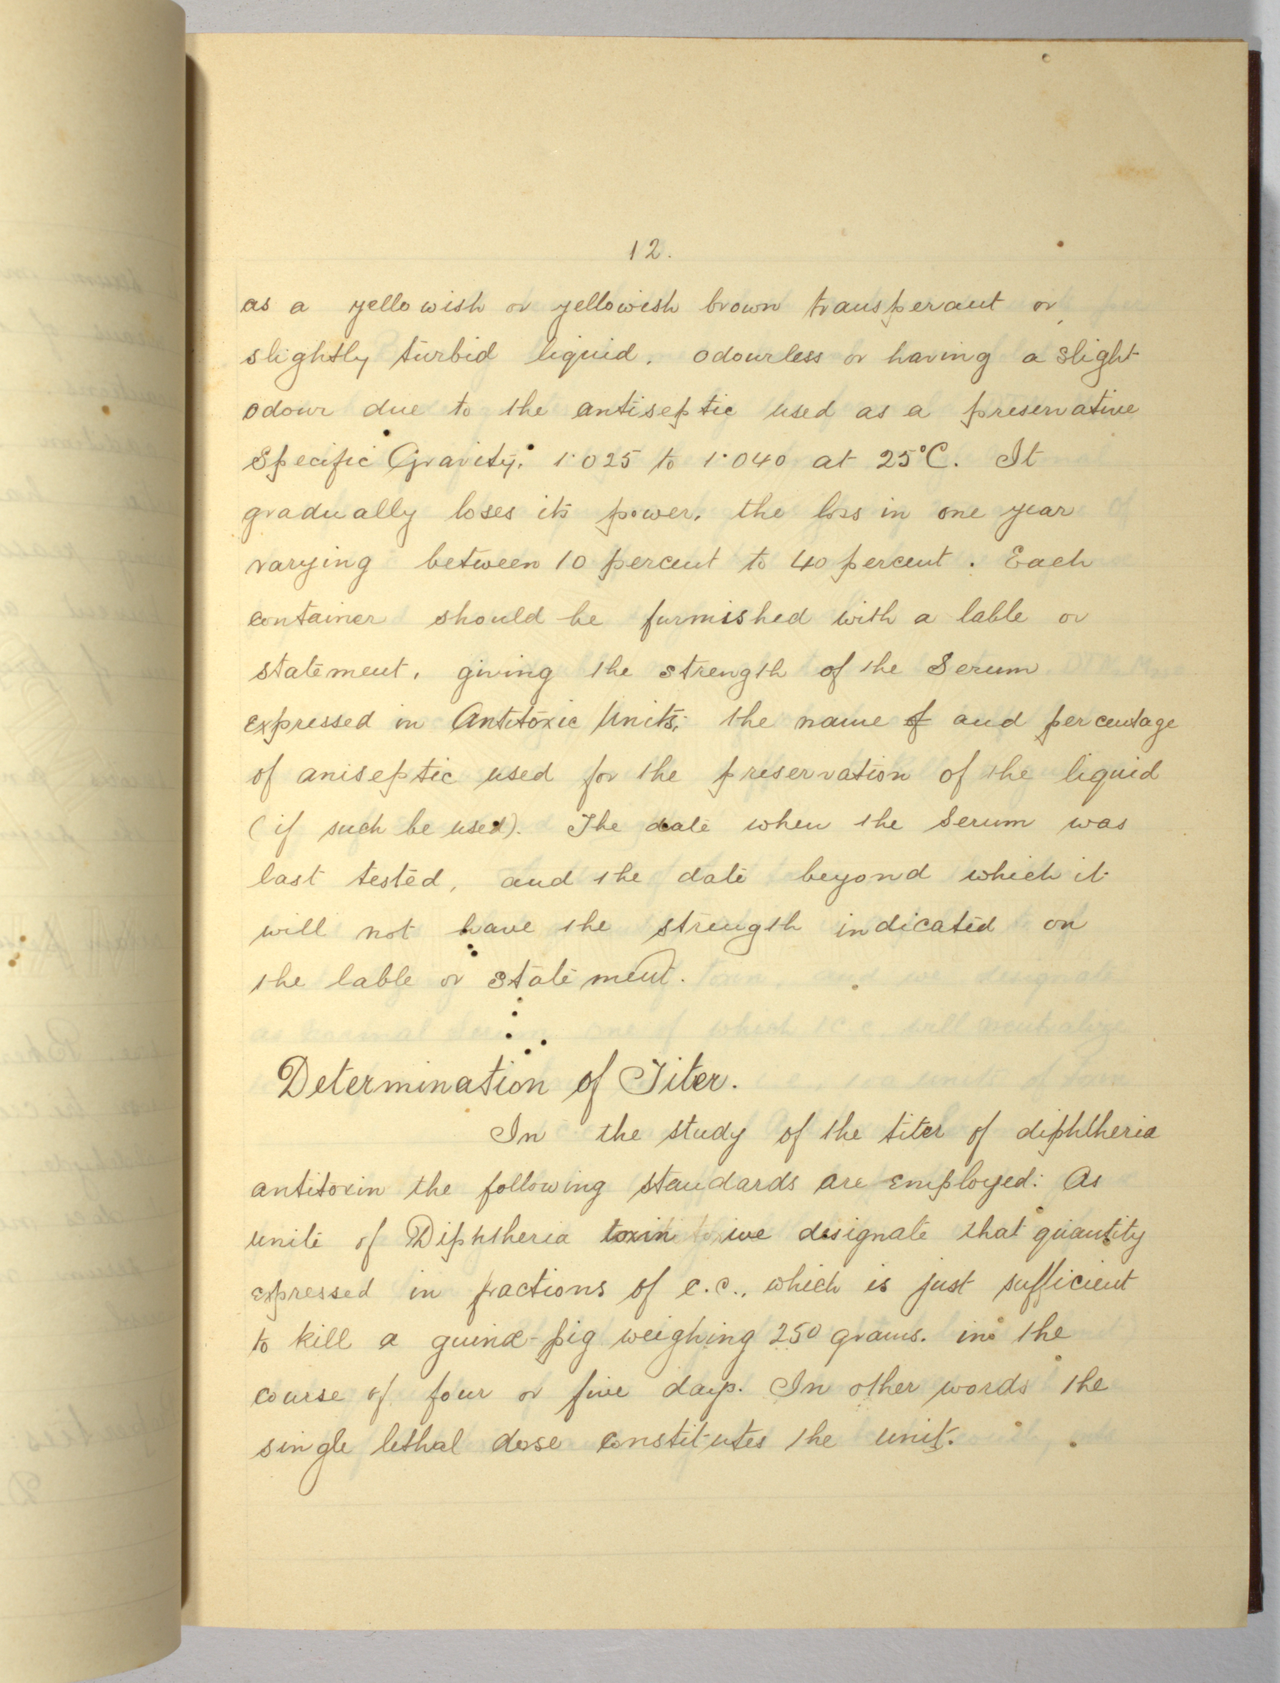 12.
as a yellowish or yellowish brown transperant or
slightly turbid liquid. odourless or having a slight
odour due to the antiseptic used as a preservative
Specific Gravity. 1·025 to 1·040 at 25°C. It
gradually loses its power, the loss in one year
varying between 10 percent to 40 percent. Each
container should be furnished with a lable or
statement, giving the strength of the Serum
expressed in Antitoxic Units; the name of and percentage
of aniseptic used for the preservation of the liquid
(if such be used). The date when the Serum was
last tested, and the date beyond which it
will not have the strength indicated on
the lable or statement.
Determination of Titer.
In the study of the titer of diphtheria
antitoxin the following standards are employed: As
unite of Diphtheria toxin we designate that quantity
expressed in fractions of c.c., which is just sufficient
to kill a guinea-pig weighing 250 grams. in the
course of four or five days. In other words the
single lethal dose constitutes the unit.